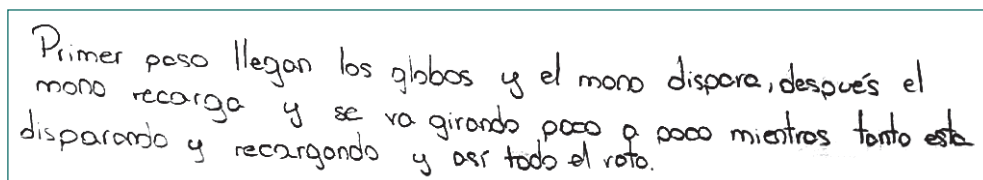 Primer paso llegan los globos y el mono dispara, después el
mono recarga y se va girando poco a poco mientras tanto esta
disparando y recargando y así todo el rato.